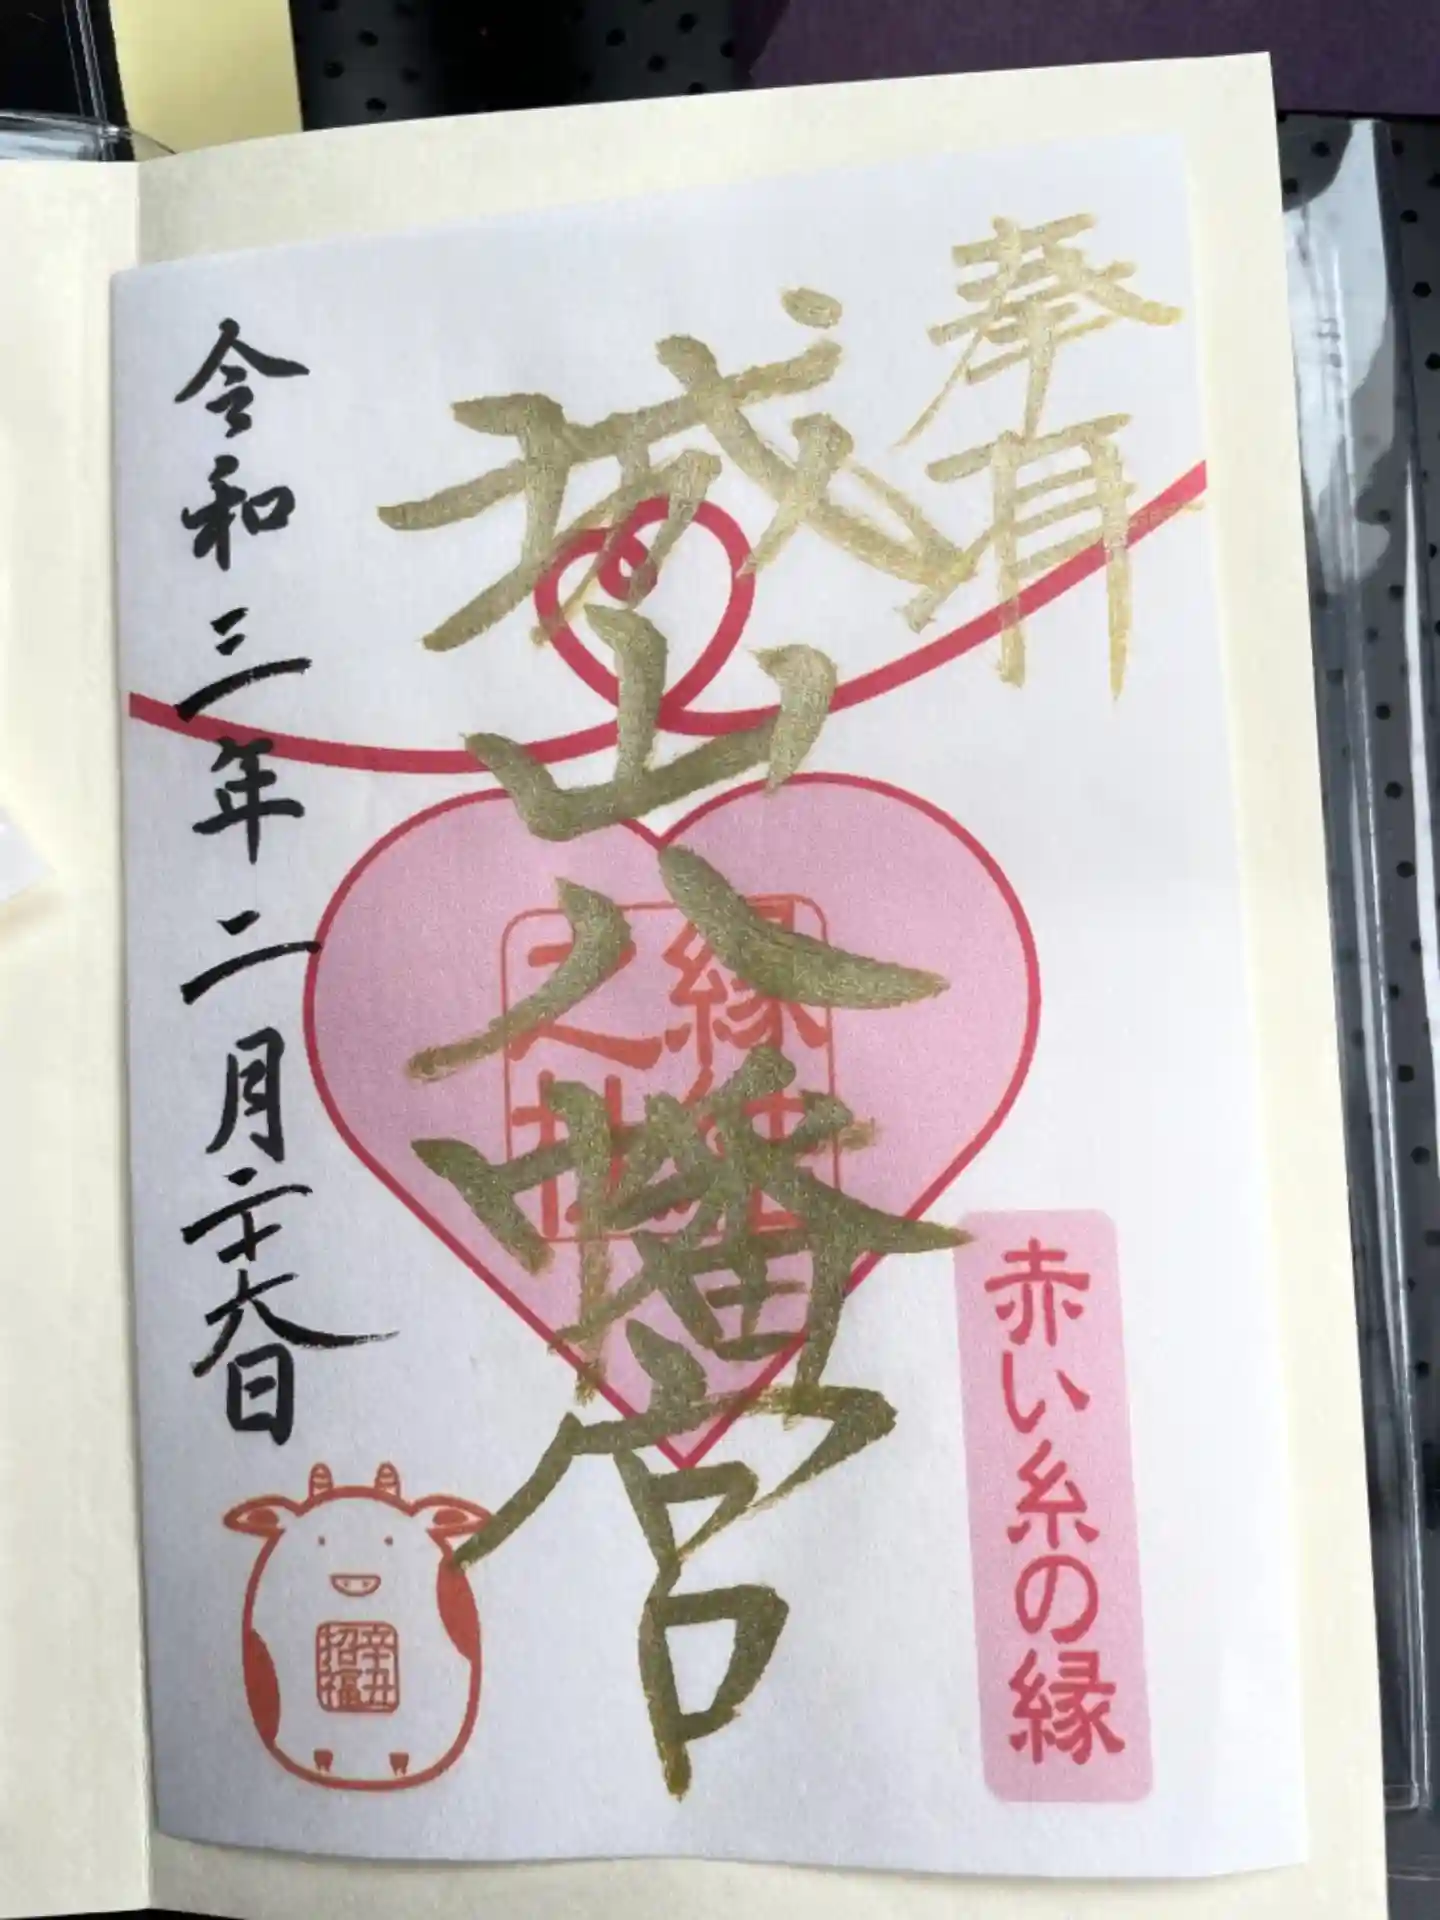 奉拝
城山八幡宮
赤い糸の縁
令和三年二月二十六日
辛丑
招福